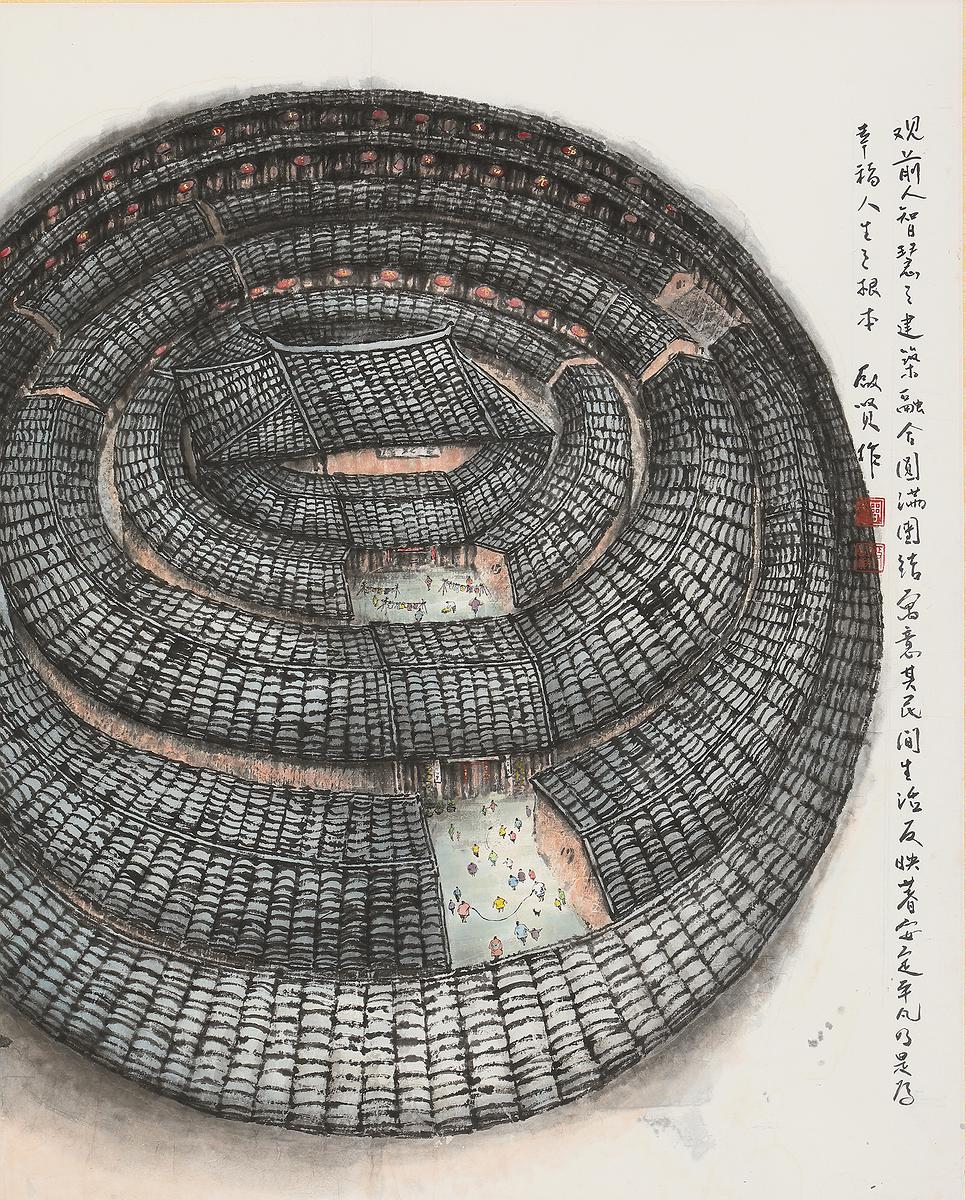 观前人智慧之建築融合圓满团结寓意其民间生活反映着安定平凡乃是为
幸福人生之根本 啟贤作